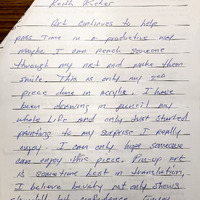 Keith Kicher
Art continues to help
pass time in a productive way
maybe I can reach someone
through my art and make them
smile. This is only my 2nd
piece done in acrylic. I have
been drawing in pencil my
whole life and only just started
painting to my surprise I really
enjoy. I can only hope someone
can enjoy this piece. Pin-up art
is sometime lost in translation,
I believe beauty not only shows
but confidence